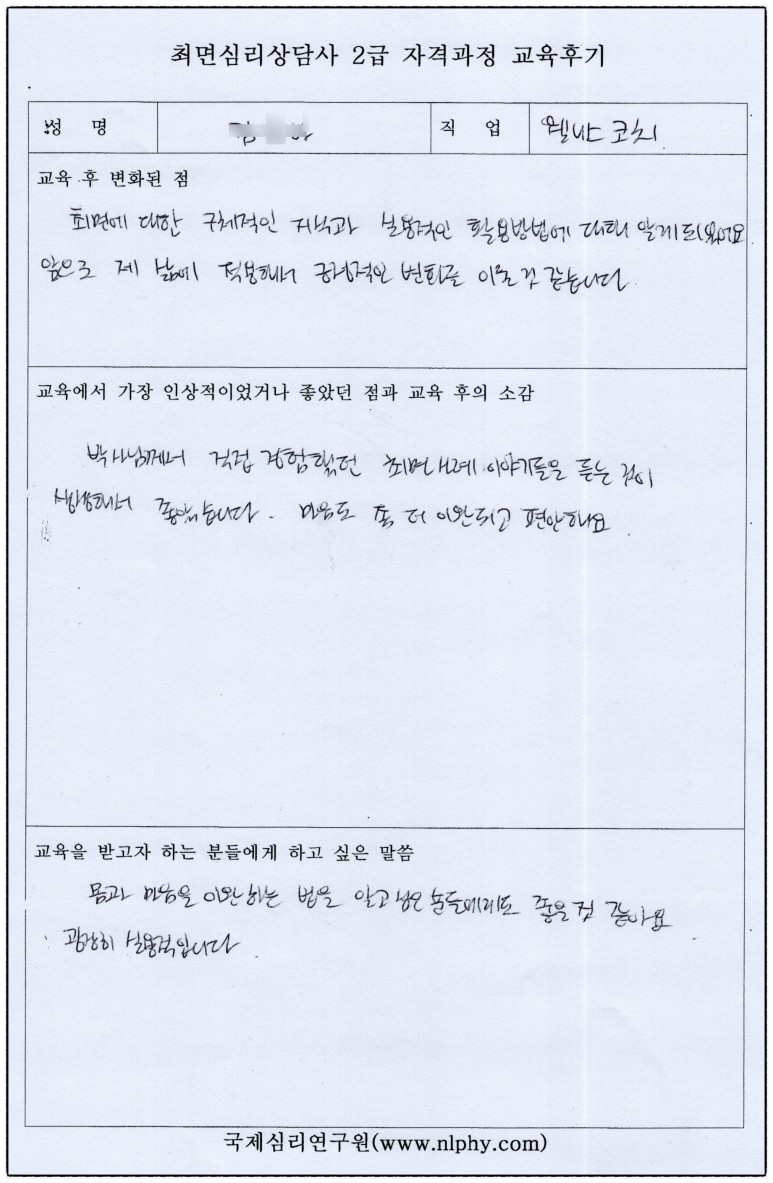 최면심리상담사 2급 자격과정 교육후기
성 명 직 업 웰니스 코치
교육 후 변화된 점
최면에 대한 구체적인 지식과 실용적인 활용방법에 대해 알게되었어요
앞으로 제 삶에 적용해서 긍정적인 변화를 이룰 것 같습니다
교육에서 가장 인상적이었거나 좋았던 점과 교육 후의 소감
박사님께서 직접 경험했던 최면사례 이야기들을 듣는 것이
생생해서 좋았습니다. 마음도 좀 더 이완되고 편안해요
교육을 받고자 하는 분들에게 하고 싶은 말씀
몸과 마음을 이완하는 법을 알고싶은 분들에게도 좋을 것 같아요
굉장히 실용적입니다
국제심리연구원(www.nlphy.com)